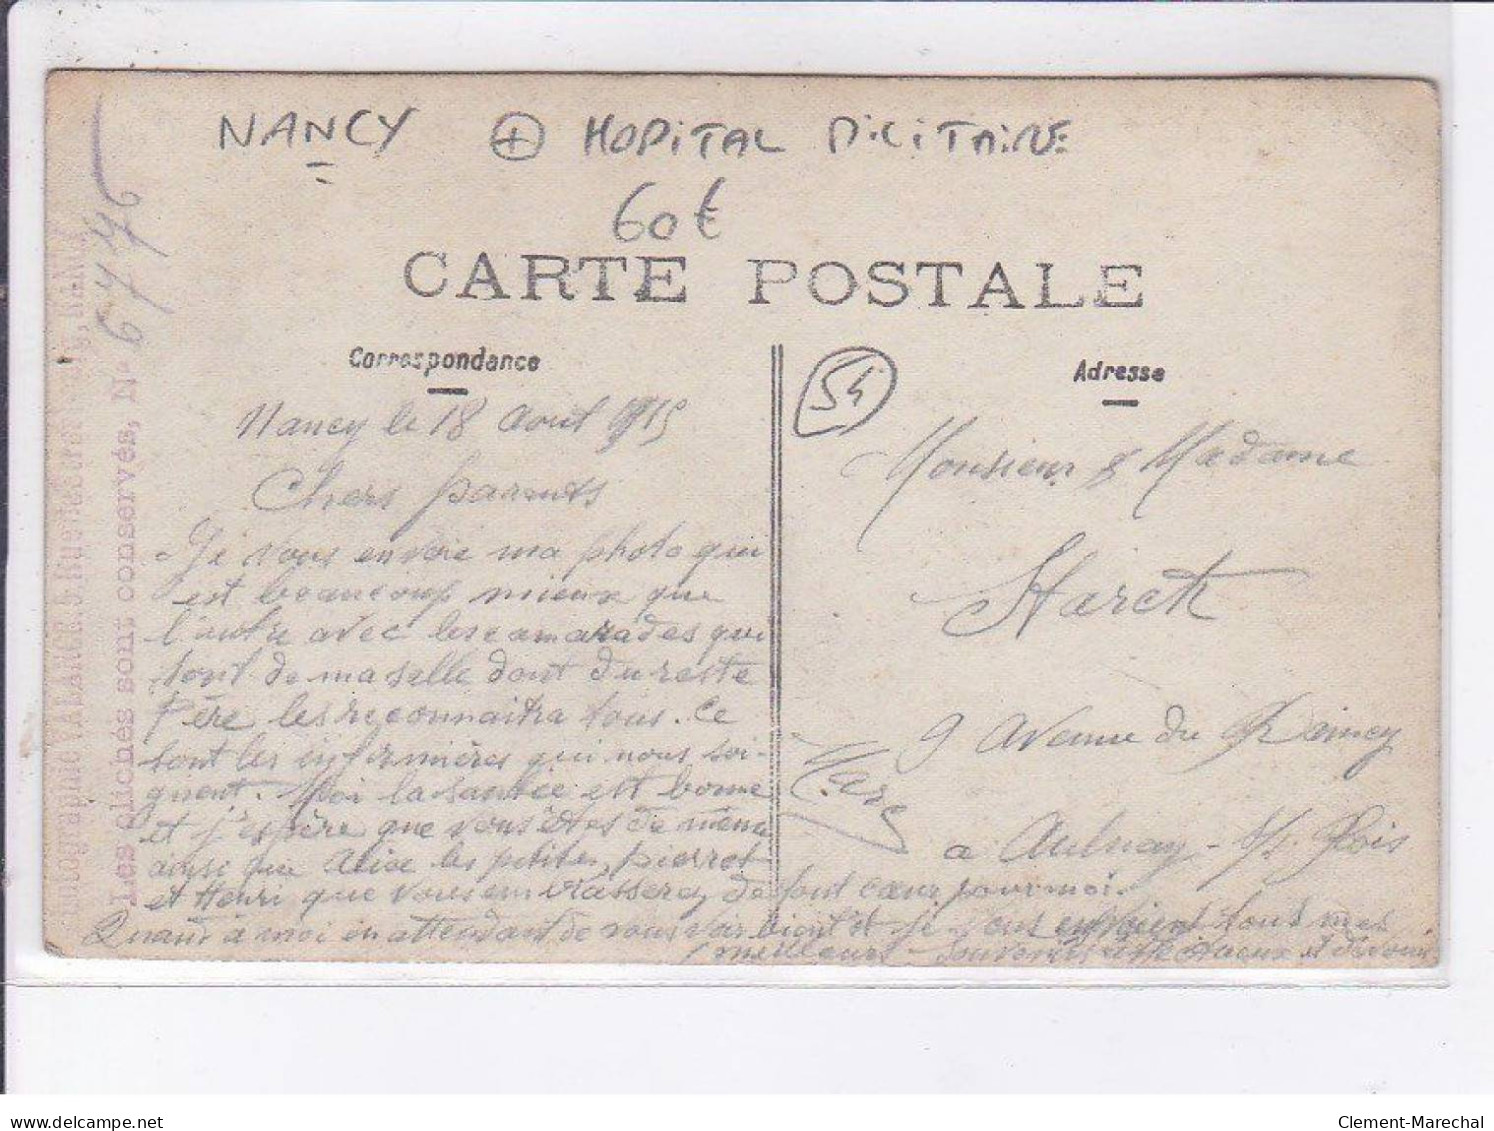 NANCY + HOPITAL MILITAIRE
60€
CARTE POSTALE
Correspondance
Adresse
54
Nancy le 18 Aout 1915
Chers parents
Je vous envoie ma photo qui
est beaucoup mieux que
l'autre avec les camarades qui
sont de ma salle dont du reste
Père les reconnaitra tous. Ce
sont les infirmières qui nous soi-
gnent. Moi la santée est bonne
et j'espère que vous êtes de même
ainsi que Alice les petites, pierrot
et Henri que vous embrasserez de tout cœur pour moi.
Quand à moi en attendant de vous voir bientot je vous envoient tous mes
meilleurs souvenirs affectueux et dévoué
Marc
Monsieur & Madame
Starck
9 Avenue du Raincy
a Aulnay-s/s. Bois
Les clichés sont conservés, No 67776
Clement-Marechal